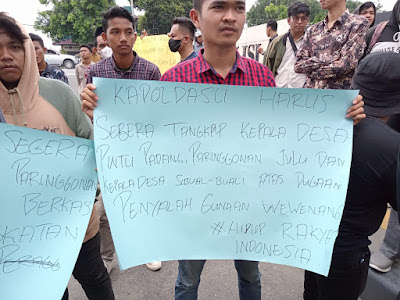 KAPOLDASU HARUS
SEGERA TANGKAP KEPALA DESA
PINTU PADANG, PARINGGONAN JULU DAN
KEPALA DESA SIBUAL-BUALI ATAS DUGAAN
PENYALAH GUNAAN WEWENANG
#HIDUP RAKYAT
INDONESIA
SEGERA
PARINGGONAN
BERKAS
KATAN